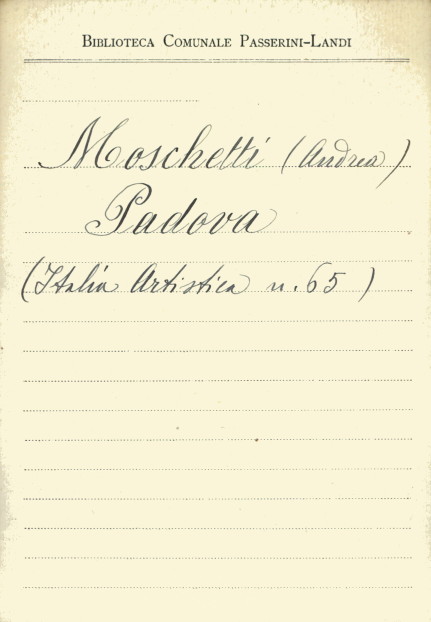 BIBLIOTECA COMUNALE PASSERINI-LANDI
Moschetti (Andrea)
Padova
(Italia Artistica n. 65)